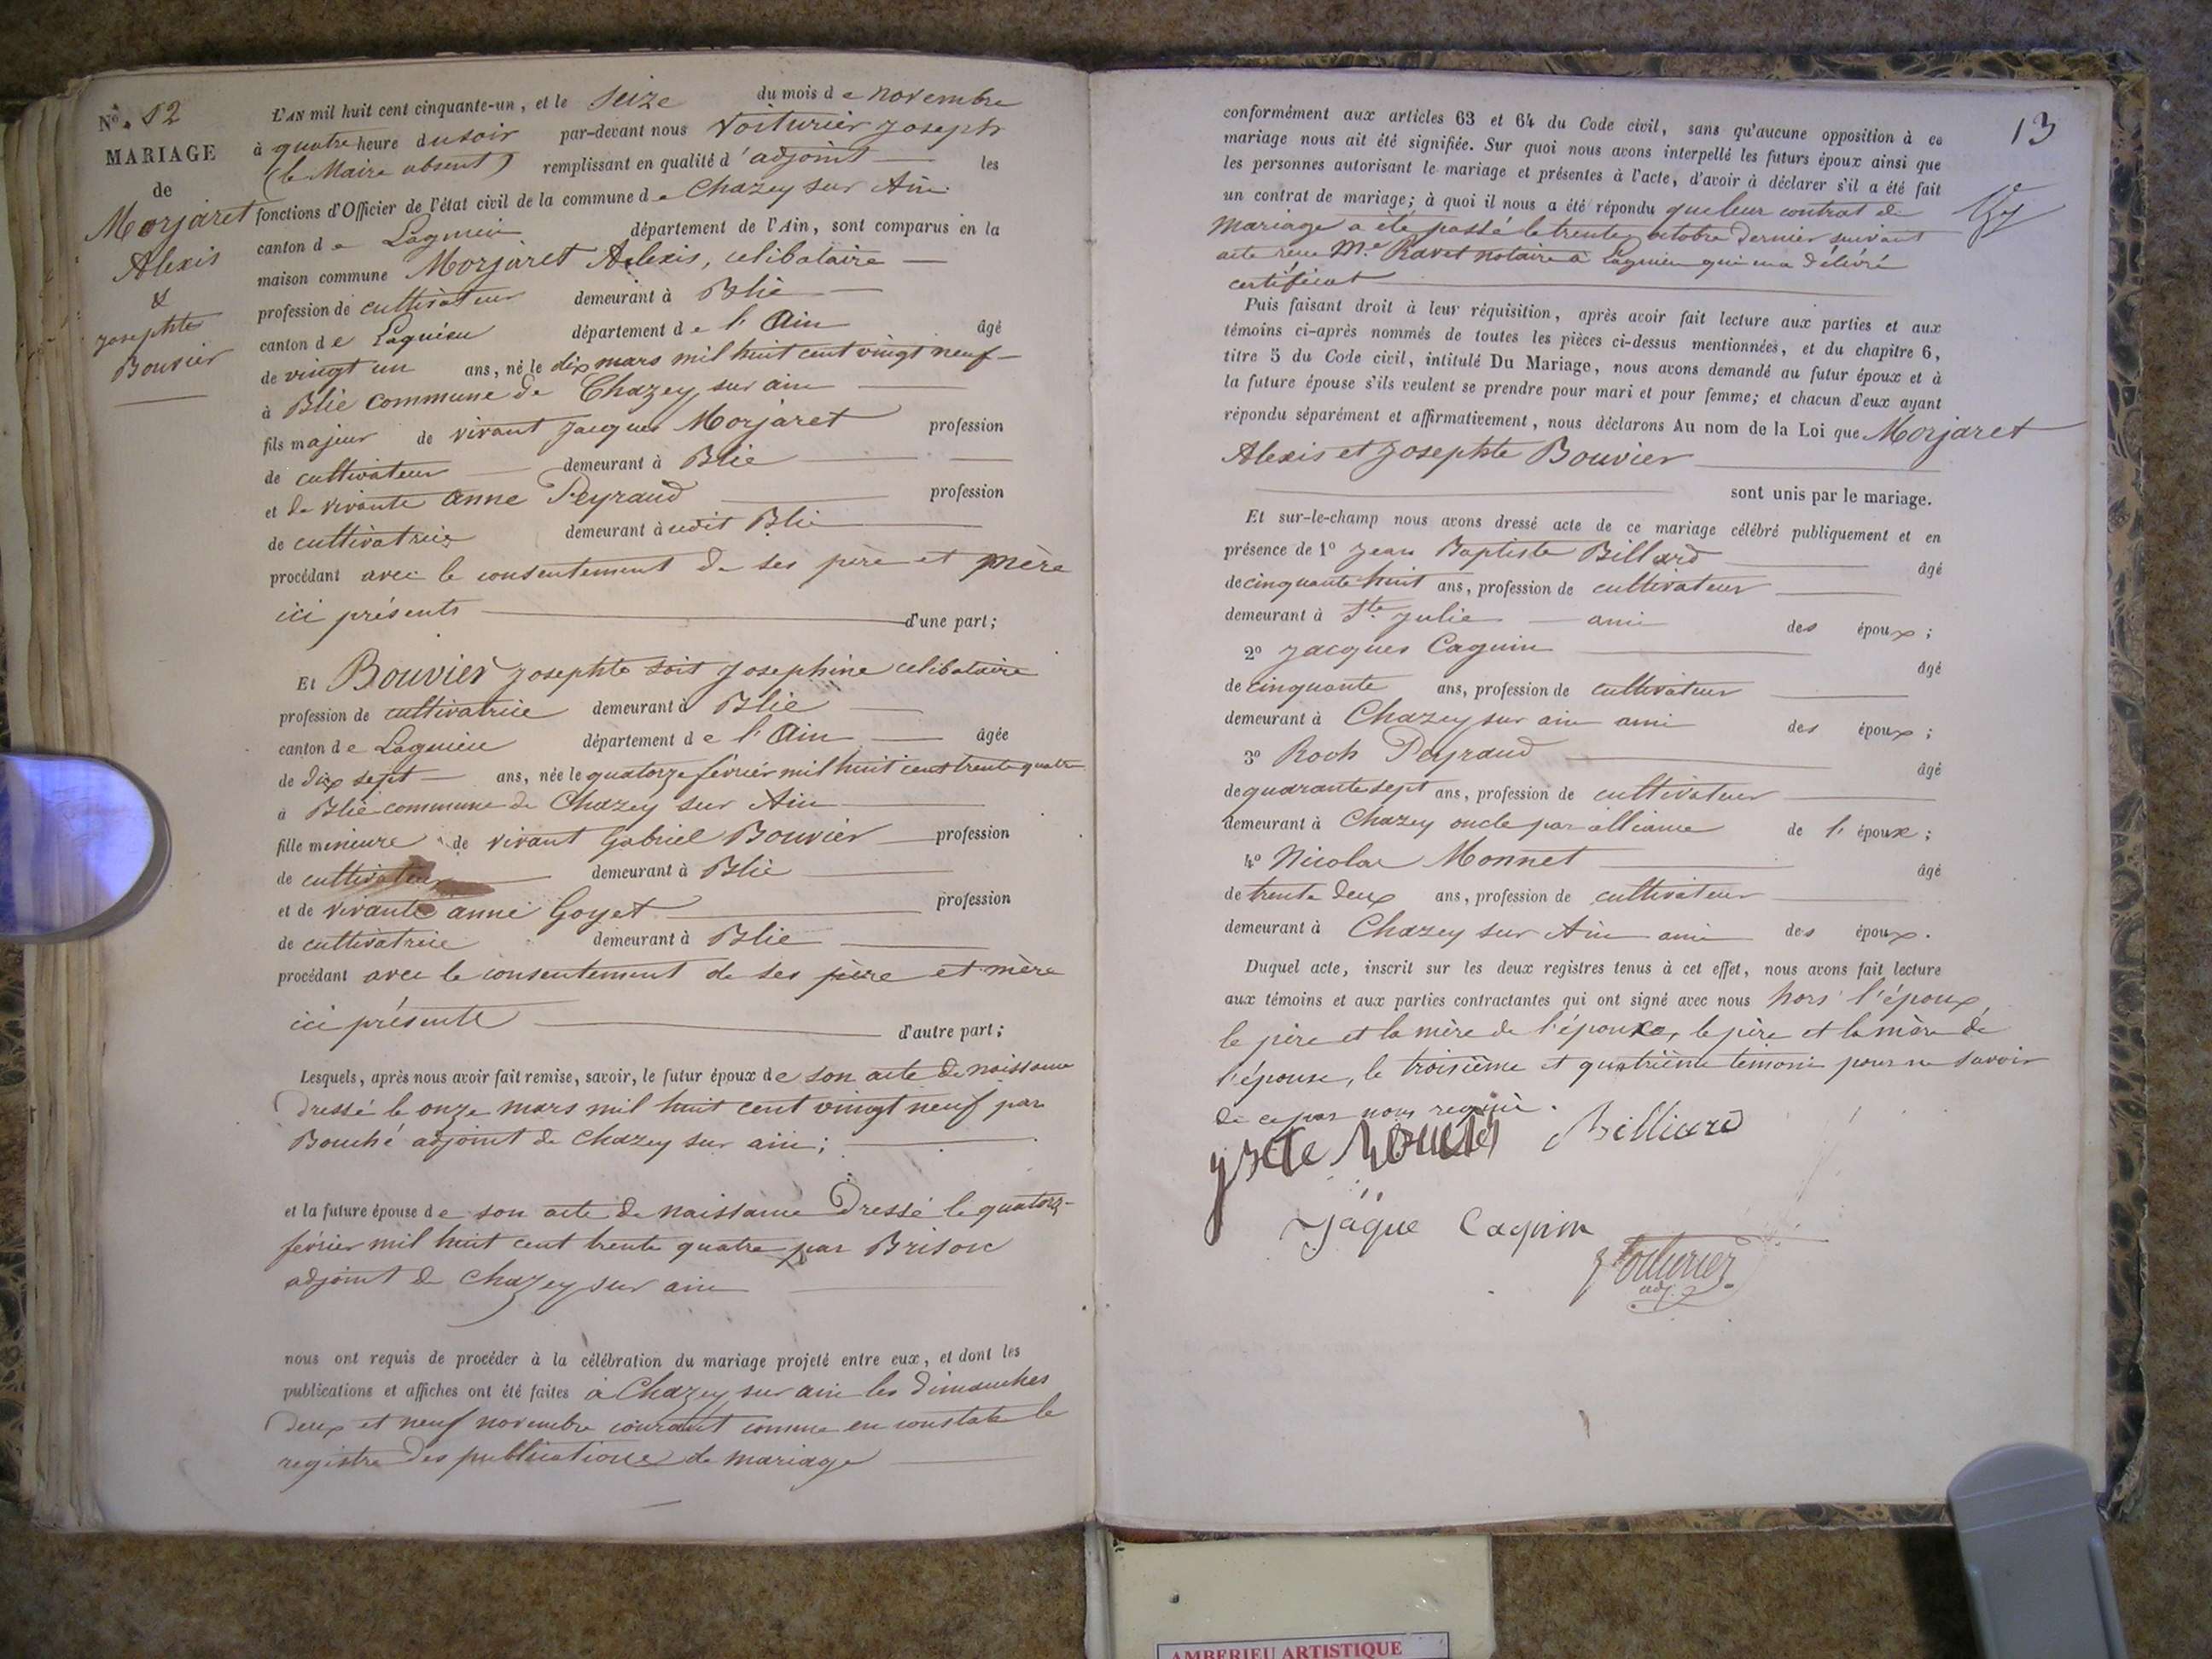 No. 12
MARIAGE
de
Morjaret
Alexis
&
Josephte
Bouvier
L'AN mil huit cent cinquante-un, et le seize du mois de novembre
à quatre heure du soir par-devant nous Voiturier Joseph
(le Maire absent) remplissant en qualité d'adjoint les
fonctions d'Officier de l'état civil de la commune de Chazey sur Ain
canton de Lagnieu département de l'Ain, sont comparus en la
maison commune Morjaret Alexis, celibataire
profession de cultivateur demeurant à Blie
canton de Lagnieu département de l'Ain âgé
de vingt un ans, né le dix mars mil huit cent vingt neuf
à Blie commune de Chazey sur ain
fils majeur de vivant Jacques Morjaret profession
de cultivateur demeurant à Blie
et de vivante Anne Peyraud profession
de cultivatrice demeurant à udit Blie
procédant avec le consentement de ses père et mère
ici présents d'une part;
Et Bouvier Josephte soit Josephine celibataire
profession de cultivatrice demeurant à Blie
canton de Lagnieu département de l'Ain âgée
de dix sept ans, née le quatorze février mil huit cent trente quatre
à Blie commune de Chazey sur Ain
fille mineure de vivant Gabriel Bouvier profession
de cultivateur demeurant à Blie
et de vivante anne Goyet profession
de cultivatrice demeurant à Blie
procédant avec le consentement de ses père et mère
ici présente d'autre part;
Lesquels, après nous avoir fait remise, savoir, le futur époux de son acte de naissance
dressé le onze mars mil huit cent vingt neuf par
Bouché adjoint de Chazey sur ain;
et la future épouse de son acte de naissance dressé le quatorze
février mil huit cent trente quatre par
adjoint de Chazey sur ain
nous ont requis de procéder à la célébration du mariage projeté entre eux, et dont les
publications et affiches ont été faites à Chazey sur ain les dimanches
deux et neuf novembre courant comme en constate le
registre des publications de mariage
13
conformément aux articles 63 et 64 du Code civil, sans qu'aucune opposition à ce
mariage nous ait été signifiée. Sur quoi nous avons interpellé les futurs époux ainsi que
les personnes autorisant le mariage et présentes à l'acte, d'avoir à déclarer s'il a été fait
un contrat de mariage; à quoi il nous a été répondu que leur contrat de
mariage a été passé le trente octobre dernier suivant
acte reçu Me. Ravet notaire à Lagnieu qui en a délivré
certificat
Puis faisant droit à leur réquisition, après avoir fait lecture aux parties et aux
témoins ci-après nommés de toutes les pièces ci-dessus mentionnées, et du chapitre 6,
titre 5 du Code civil, intitulé Du Mariage, nous avons demandé au futur époux et à
la future épouse s'ils veulent se prendre pour mari et pour femme; et chacun d'eux ayant
répondu séparément et affirmativement, nous déclarons Au nom de la Loi que Morjaret
Alexis et Josephte Bouvier
sont unis par le mariage.
Et sur-le-champ nous avons dressé acte de ce mariage célébré publiquement et en
présence de 1º Jean Baptiste Billard âgé
de cinquante huit ans, profession de cultivateur
demeurant à Ste Julie ami des époux;
2º Jacques Caguin âgé
de cinquante ans, profession de cultivateur
demeurant à Chazey sur ain ami des époux;
3º Roch Peyraud âgé
de quarante sept ans, profession de cultivateur
demeurant à Chazey oncle par alliance de l'époux;
4º Nicolas Monnet âgé
de trente deux ans, profession de cultivateur
demeurant à Chazey sur Ain ami des époux.
Duquel acte, inscrit sur les deux registres tenus à cet effet, nous avons fait lecture
aux témoins et aux parties contractantes qui ont signé avec nous hors l'époux,
le père et la mère de l'époux, le père et la mère de
l'épouse, le troisième et quatrième temoin pour ne savoir
de ce par nous requis.
Billiard
Jaque Caguin
Voiturier
adj.
AMBERIEU ARTISTIQUE